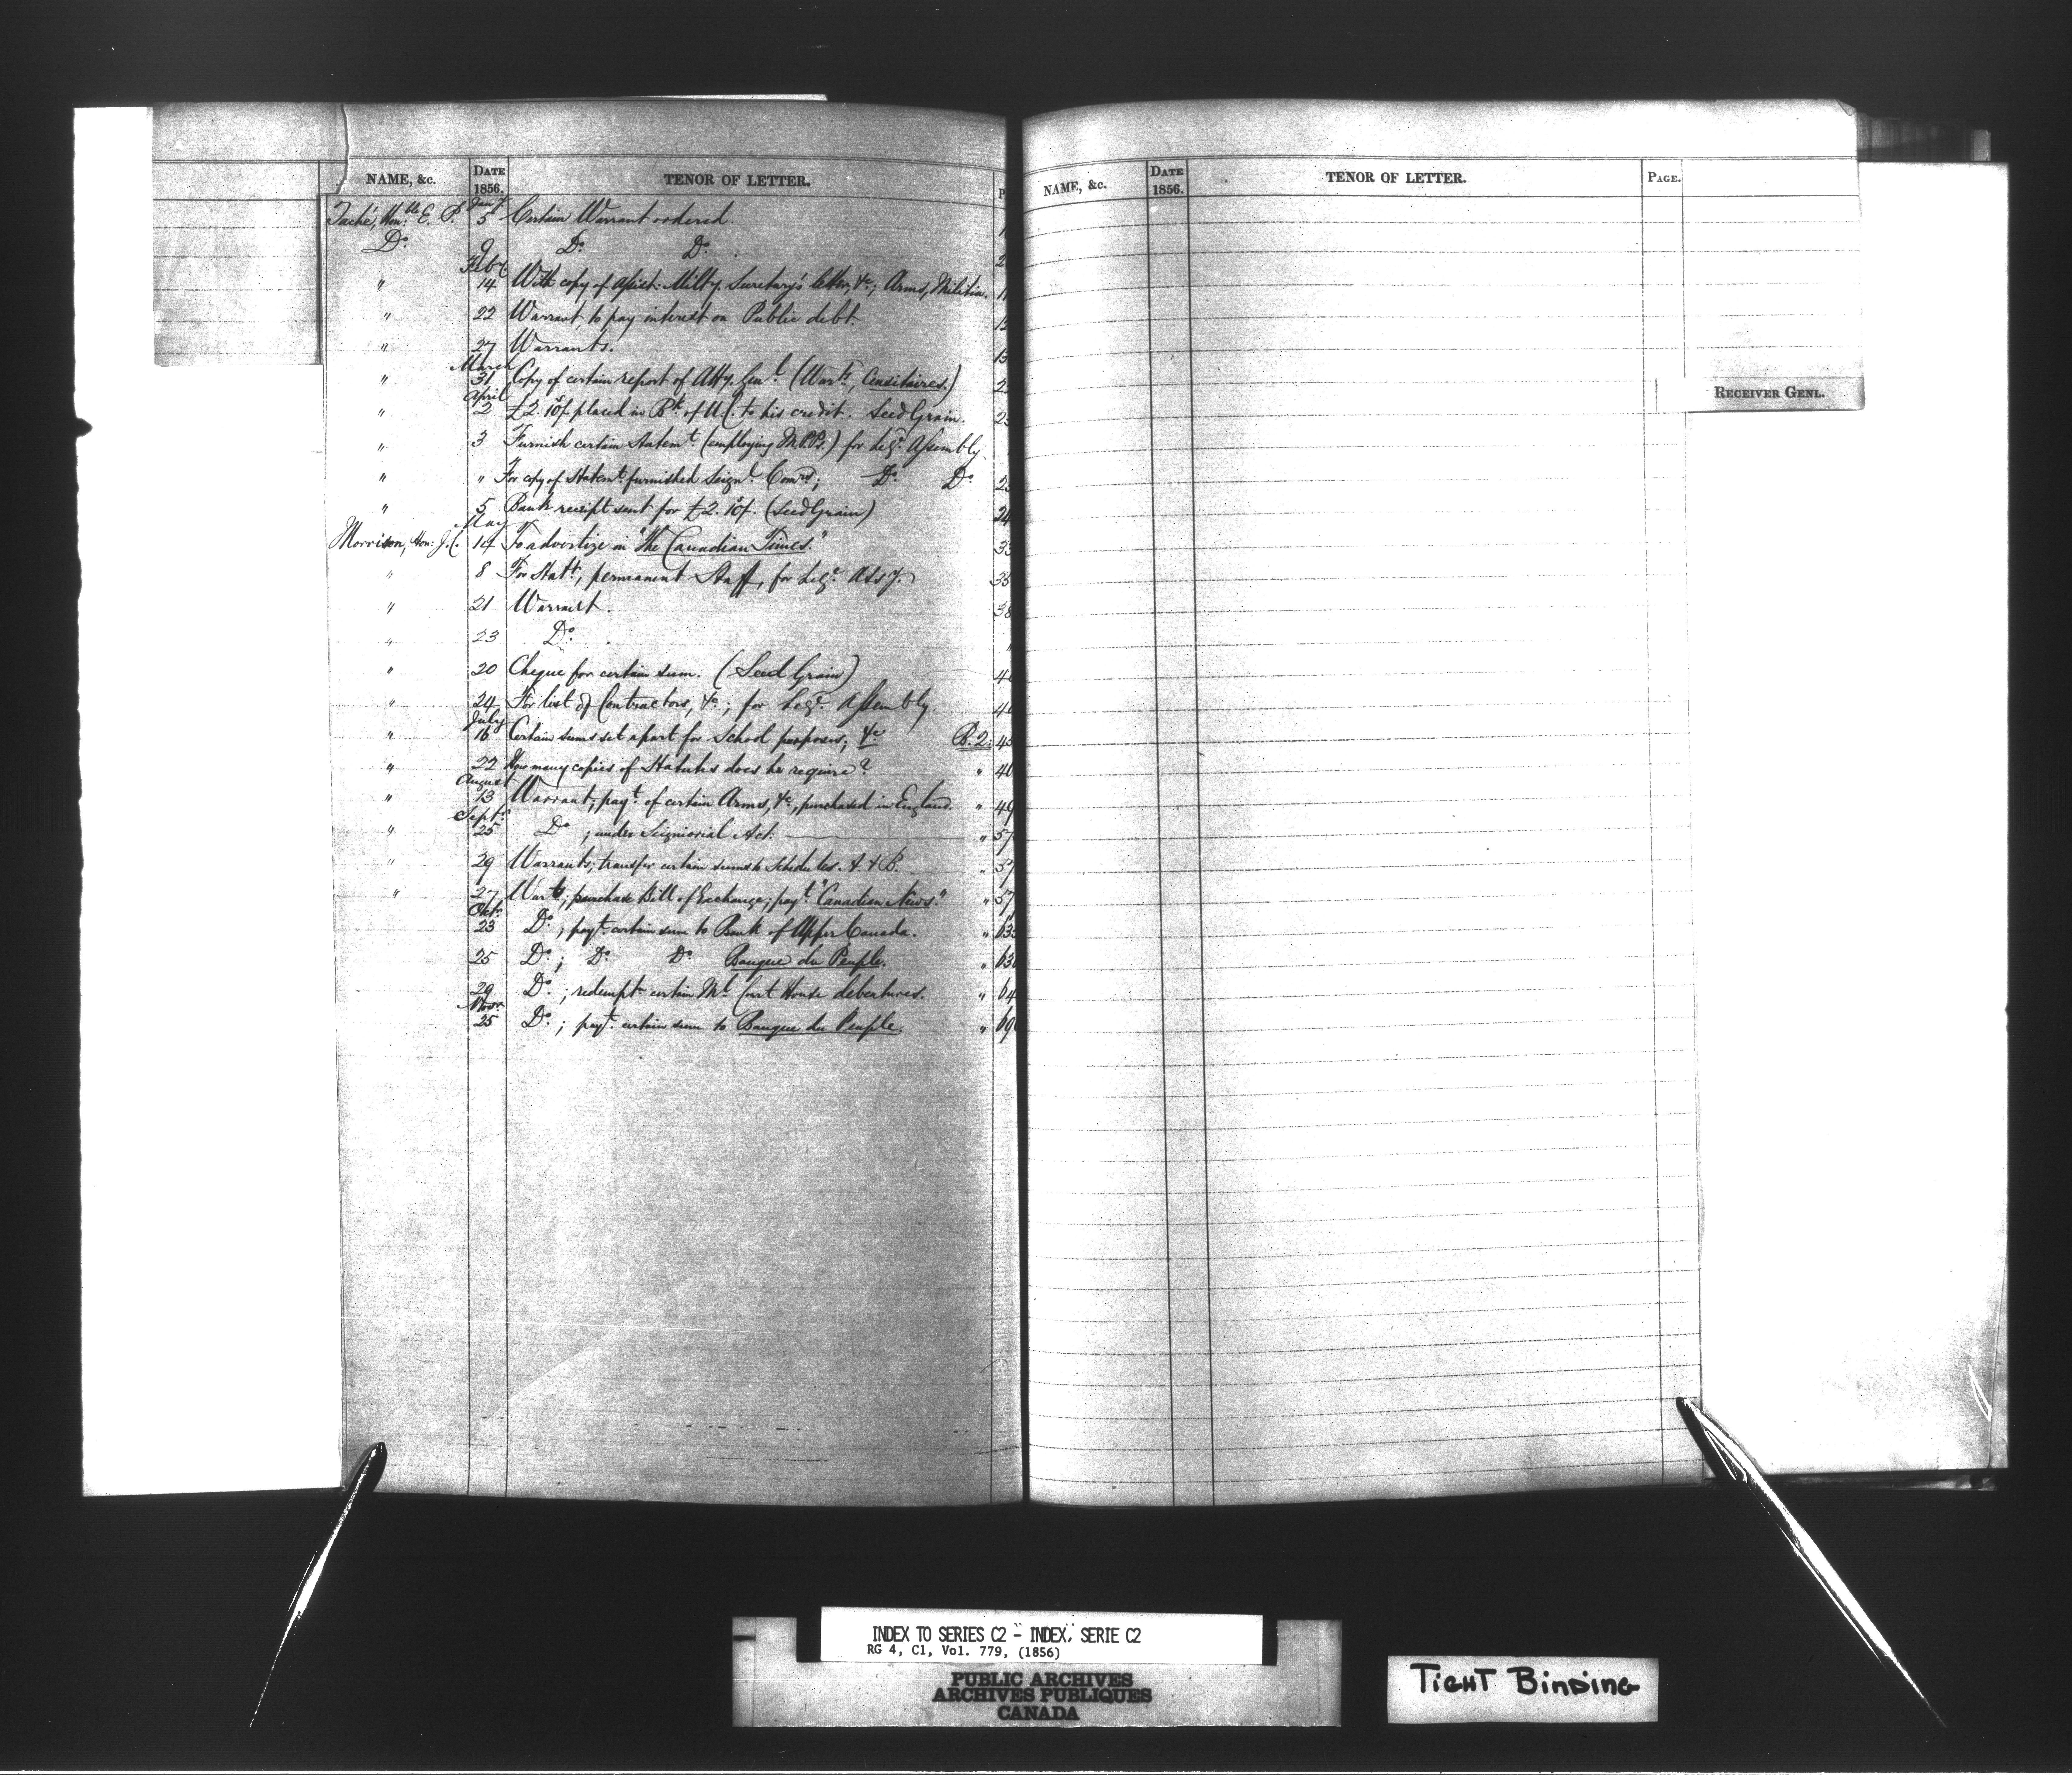 NAME, &c. DATE 1856. TENOR OF LETTER. P
Taché, Honble E. P. Jany. 5 Certain Warrant ordered. 1
Do. 9 Do. Do. 2
" Feby 14 With copy of Assist: Milty. Secretary's letter, &c; Arms, Militia. 11
" 22 Warrant, to pay interest on Public debt. 12
" 27 Warrants. 13
" March 31 Copy of certain report of Atty. Genl. (Warts, Censitaires.) 2
" April 2 £2. 10/. placed in Bk. of U.C. to his credit. Seed Grain. 23
" 3 Furnish certain Statemt. (employing M.P.Ps.) for Legve. Assembly.
" " For copy of Statemt. furnished Seignl. Comrs; Do. Do. 23
" 5 Bank receipt sent for £2. 10/. (Seed Grain) 24
Morrison, Hon: J.C. May 14 To advertize in "The Canadian Times." 33
" 8 For Statt., permanent Staff, for Legve. Assy. 35
" 21 Warrant. 38
" 23 Do. "
" 20 Cheque for certain sum. (Seed Grain) 40
" 24 For list of Contractors, &c.; for Legve. Assembly 40
" July 16 Certain sums set apart for School purposes, &c B. 2: 43
" 22 How many copies of Statutes does he require? " 40
" August 13 Warrant, payt. of certain Arms, &c., purchased in England. " 49
" Septr. 25 Do.; under Seigniorial Act. " 57
" 29 Warrants, transfer certain sums to Schedules. A. & B. " 57
" 27 Warts; purchase Bill of Exchange; payt. "Canadian News." " 57
Octr. 23 Do.; payt. certain sum to Bank of Upper Canada. " 63
25 Do.; Do. Do. Banque du Peuple. " 63
29 Do.; redempt. certain Ml. Court House debentures. " 64
Novr. 25 Do.; payt. certain sum to Banque du Peuple. " 69
NAME, &c. DATE 1856. TENOR OF LETTER. PAGE.
RECEIVER GENL.
INDEX TO SERIES C2 - INDEX, SERIE C2
RG 4, C1, Vol. 779, (1856)
PUBLIC ARCHIVES
ARCHIVES PUBLIQUES
CANADA
TIGHT BINDING